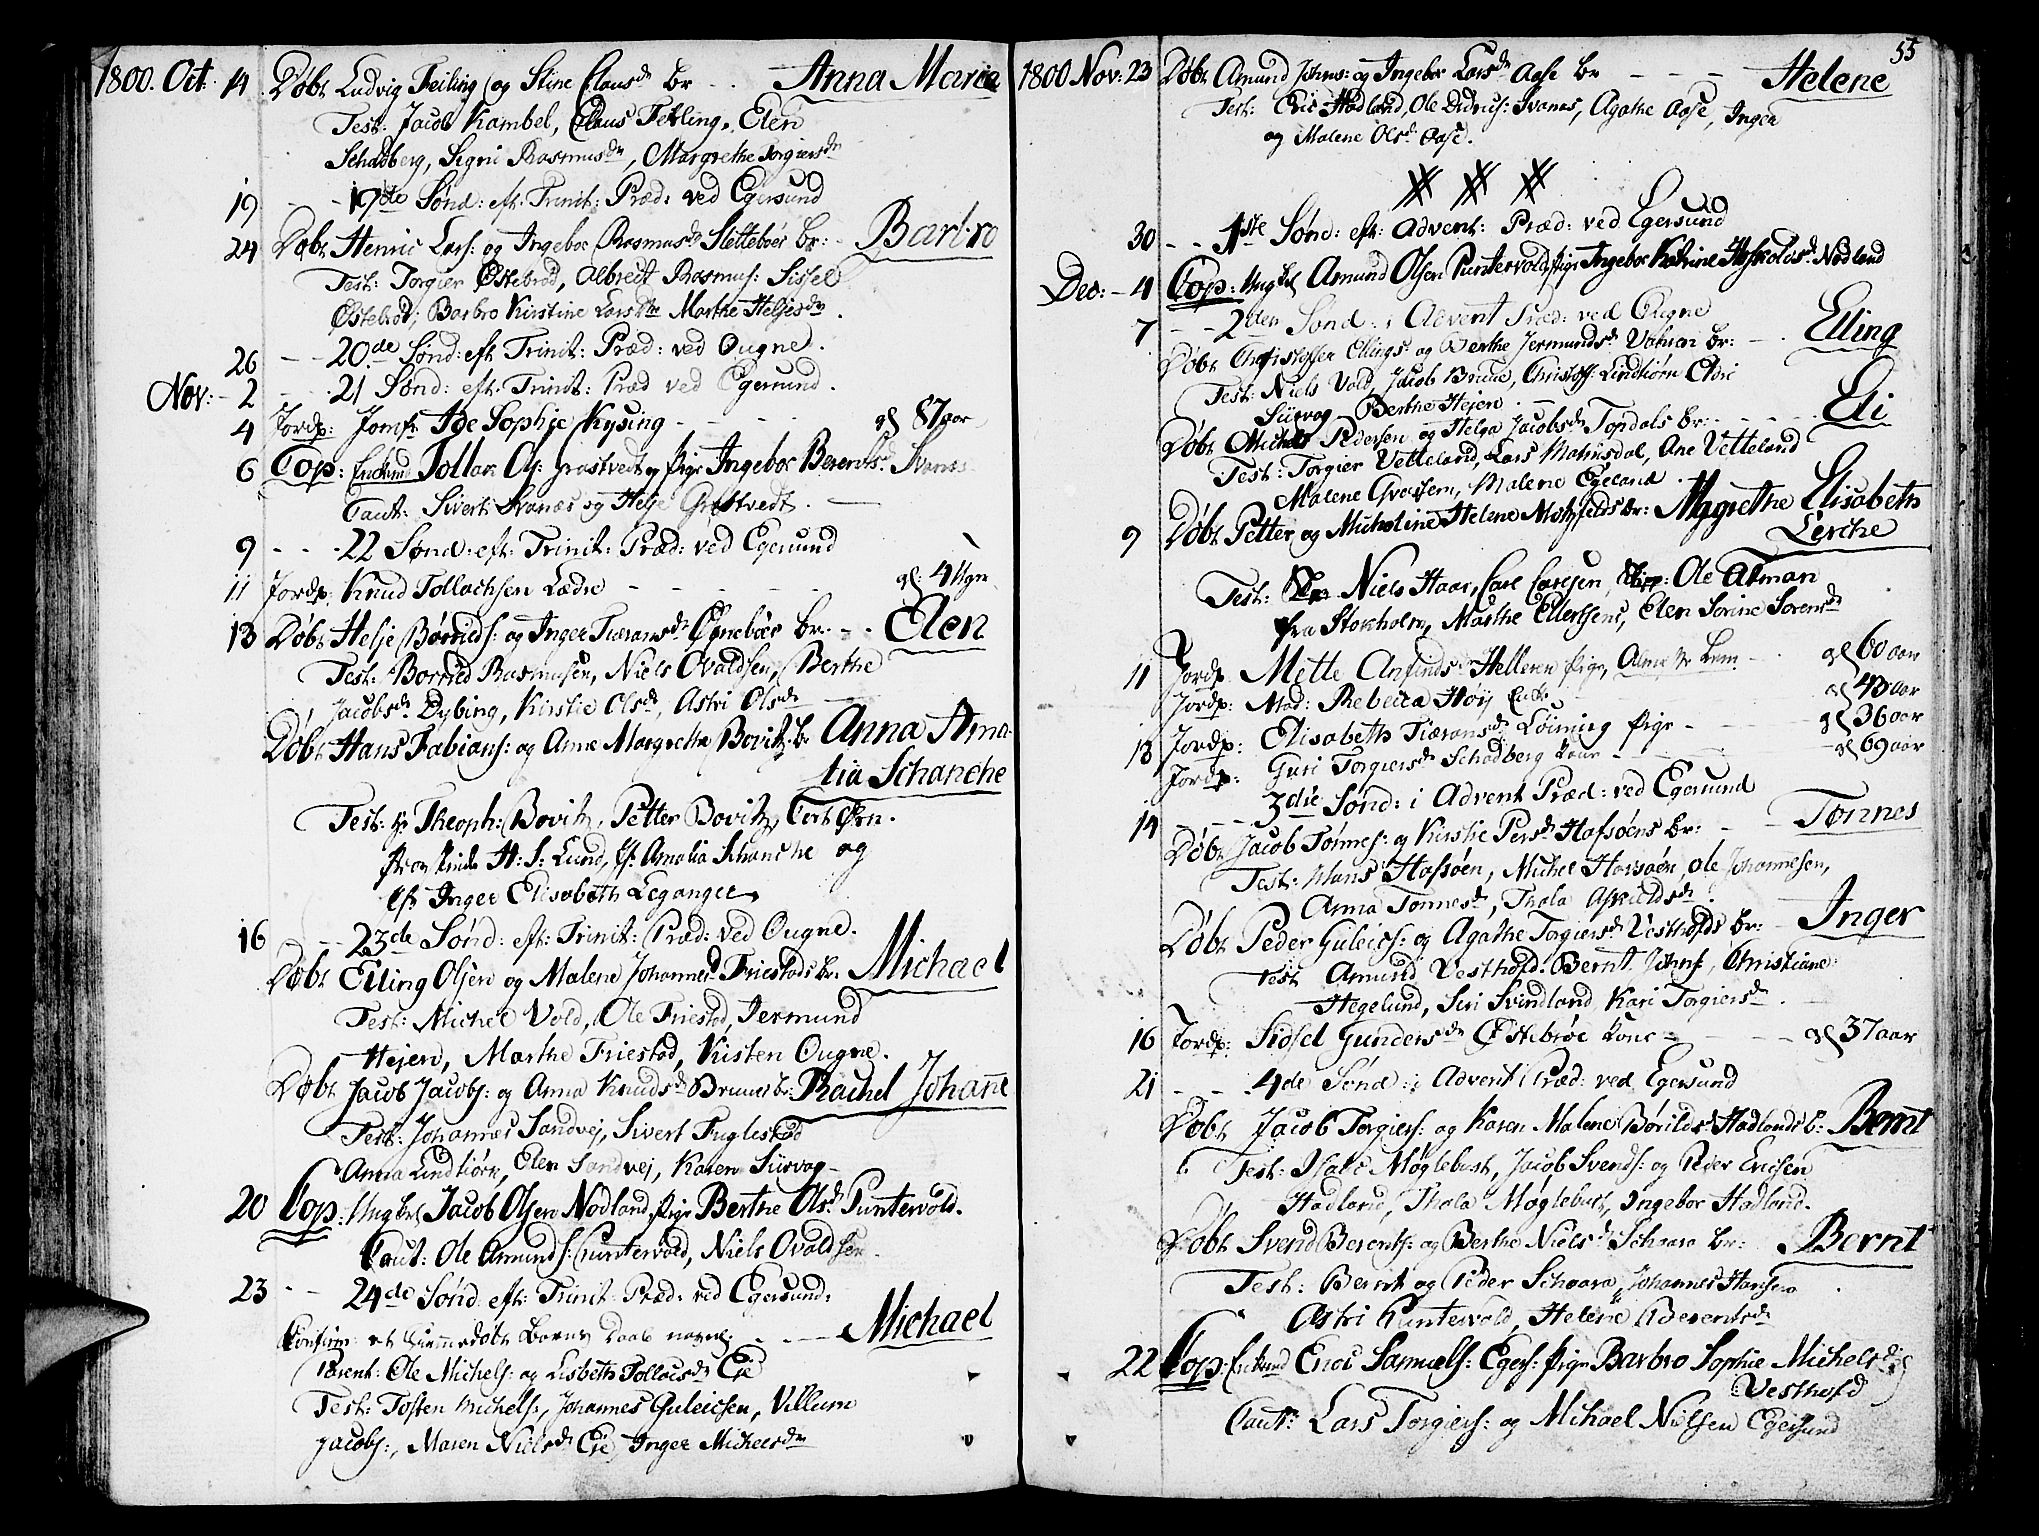 1800. Oct. 14. Døbt Ludvig Feiling og Stine Clausdr Br - - Anna Maria
Test: Jacob Kambel, Claus Feiling, Elen
Schadberg, Segri Rasmusdr, Margrethe Torgiersdr
19 - - 19de Sønd: eft. Trinit: Præd: ved Egersund
24 Døbt Henric Lars: og Ingebor Rasmusdr Sletteböes Br: - Barbro
Test: Torgier Østebrød, Albrect Rasmus: Sissel
Østebrød, Barbro Kirstine Larsdtr Marthe Heljesdr.
26 - - 20de Sønd: eft Trinit: Præd: ved Ougne.
Nov: - 2 - - 21 Sønd: eft: Trinit: Præd ved Egersund.
4 Jordp: Jomfr Ide Sophie Kysing - - - gl 87 aar
6 Cop: Enckmd Tollac Ols: Grøstvedt og Pige Ingebor Berentsd. Svanæs
Caut: Sivert Svanæs og Helje Grøstvedt.
9 - - - 22 Sønd: eft: Trinit: Præd: ved Egersund
11 Jordp: Knud Tollachsen Lædre - - - gl: 4 Ugr
13 Døbt Helje Børrids: og Inger Tiæransdr Egneböes Br: - - Elen
Test: Borrild Rasmusen, Niels Ovaldsen, Berthe
Jacobsdr Dybing, Kirstie Olsdr, Astri Olsdr
Døbt Hans Fabians: og Anne Margrethe Bovitz Br. Anna Ama-
lia Schanche
Test: Hr Theoph: Bovitz, Petter Bovitz, Cort Ørn.
H: S: Lund, Jfr Amalia Schanche og
Jfr Inger Elisabeth Leganger.
16 - - 23de Sønd: eft: Trinit: Præd: ved Ougne.
Døbt Elling Olsen og Malene Johannesd Friestads Br. Michael
Test: Michel Vold, Ole Friestad, Jermund
Hejen, Marthe Friestad, Kirsten Ougne.
Døbt Jacob Jacobs: og Anna Knudsdr Bruues Br: Rachel Johanne
Test: Johannes Sandvej, Sivert Fuglestad
Anna Lindtiörn, Elen Sandvej, Karen Siirvog
20 Cop: Ungkrl Jacob Olsen Nodland, Pige Berthe Olsdr Puntervold.
Caut: Ole Amunds: Puntervold, Niels Ovaldsen.
23 - - 24de Sønd. eft: Trinit. Præd: ved Egersund:
Confirm: et hiemmedøbt Barns Daab navnl: - - - Michael
Parent: Ole Michels: og Lisbeth Tollacsdr Eje
Test: Tosten Michels:, Johannes Guleicsen, Villum
Jacobs:, Maren Nielsdr Eje, Inger Michelsdr
55
1800 Nov: 23 Døbt Amund Johns: og Ingebor Larsdr Aase Br - - - Helene
Test: Eric Hadland, Ole Didrics: Svanes, Agathe Aase, Inger
og Malene Olsdr Aase.
30 - - 1ste Sønd: eft: Advent: Præd: ved Egersund
Dec: - 4 Cop: Ungkrl Amund Olsen Puntervold, Pige Ingebor Katrine Askolds: Nodland
7 - - 2den Sønd: i Advent Præd: ved Ougne
Døbt Christoffer Ellings: og Berthe Jermundsdr Br: - - Elling
Test: Niels Vold, Jacob Bruue, Christoff: Lindtiörn
Siirvog Berthe Hejen
Døbt Michel Pedersen og Helga Jacobsdr Tordals Br: - - - Eli
Test: Torgier Vetteland, Lars Matnisdal, Ane Vetteland
Malene Gvassem, Malene Egeland.
9 Døbt Petter og Micheline Helene Motzfelds Br: Mgrethe Elisabeth
Lerche
Test: Niels Haar, Carl Carlsen, Ole Atman
fra Stokholm, Marthe Ellertsens, Elen Sorine Sorensdr
11 Jordp. Mette Anfindsdr Helleren Pige, Almisse Lem - - gl 60 aar
Jordp: Mad: Rebecca Höÿ Enke - gl 43 aar
13 Jordp: Elisabeth Tiæransdr Löining Pige - - - gl 36 aar
Jordp: Guri Torgiersdr Schadberg - - - gl 69 aar
14 - - - 3die Sønd: i Advent Præd: ved Egersund
Døbt Jacob Tönnes: og Kirstie Persdr Hafsöens Br: - - Tønnes
Test: Hans Hafsöen, Michel Hafsöen, Ole Johannesen,
Anna Tönnesdr, Thala Askildsdr.
Døbt Peder Guleics: og Agathe Torgiersdr Vestholds Br: - Inger
Test Amund Vesthold. Bernt Johns, Christiane
Hegelund, Siri Svindland, Kari Torgiersdr.
16 Jordp: Sidsel Gundersdr Østebröe Kone - - - - gl 37 aar
21 - - - 4de Sønd: i Advent Præd: ved Egersund
Døbt Jacob Torgiers: og Karen Malene Børildsdr Hadlands B: Bernt
Test: Isaac Møglebust, Jacob Svends: og Peder Ericsen
Hadland, Thala Møglebust, Ingebor Hadland.
Døbt Svend Berents: og Berthe Nielsdr Schaara Br: Bernt
Test: Bernt og Peder Schaara, Johannes Hansen
Astri Puntervold, Helene Berentsdr
22 Cop: Enckmd Enoc Samuels: Egers: Pige Barbro Sophie Michelsdr
Vesthold
Caut: Lars Torgiers: og Michael Nielsen Egersund